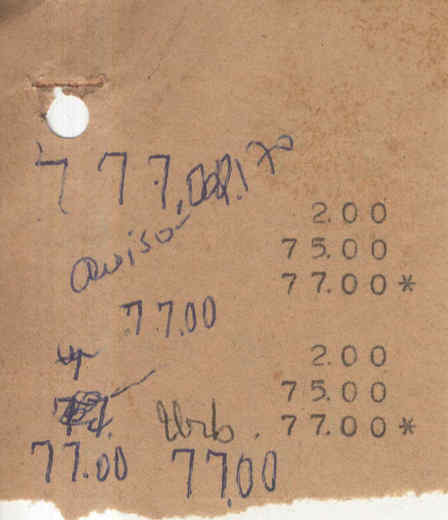 777,
2.00
aviso
75.00
77.00*
77.00
2.00
75.00
77.00*
77.00 77.00